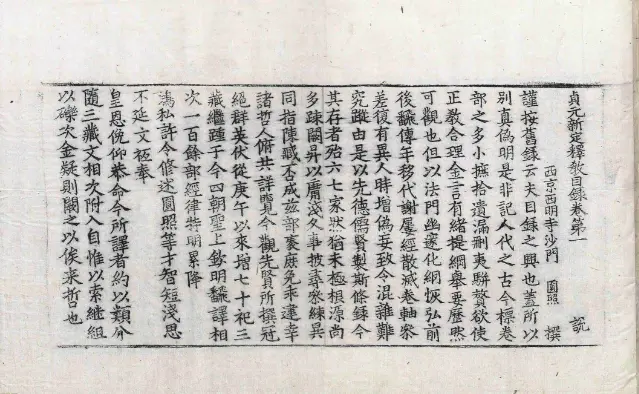 貞元新定釋教目錄卷第一 說
西京西明寺沙門 圓照 撰
謹按舊錄云夫目錄之興也蓋所以
別真偽明是非記人代之古今標卷
部之多小摭拾遺漏刪夷駢贅欲使
正教合理金言有緒提綱舉要歷然
可觀也但以法門幽邃化網恢弘前
後飜傳年移代謝屢經散滅卷軸參
差復有異人時增偽妄致令混雜難
究蹤由是以先德儒賢製斯條錄今
其存者殆六七家然猶未極根源尚
多疎闕昇以庸淺久事披尋參練異
同指陳臧否成茲部袠庶免乖違幸
諸哲人俯共詳覽今觀先賢所撰冠
絕群英伏從庚午以來增七十祀三
藏繼踵于今四朝聖上欽明飜譯相
次一百餘部經律特明累降
鴻私許令修述圓照等才智短淺思
不延文極奉
皇恩俛仰恭命今所譯者約以類分
隨三藏文相次附入自惟以索繼組
以礫次金疑則闕之以俟來哲也